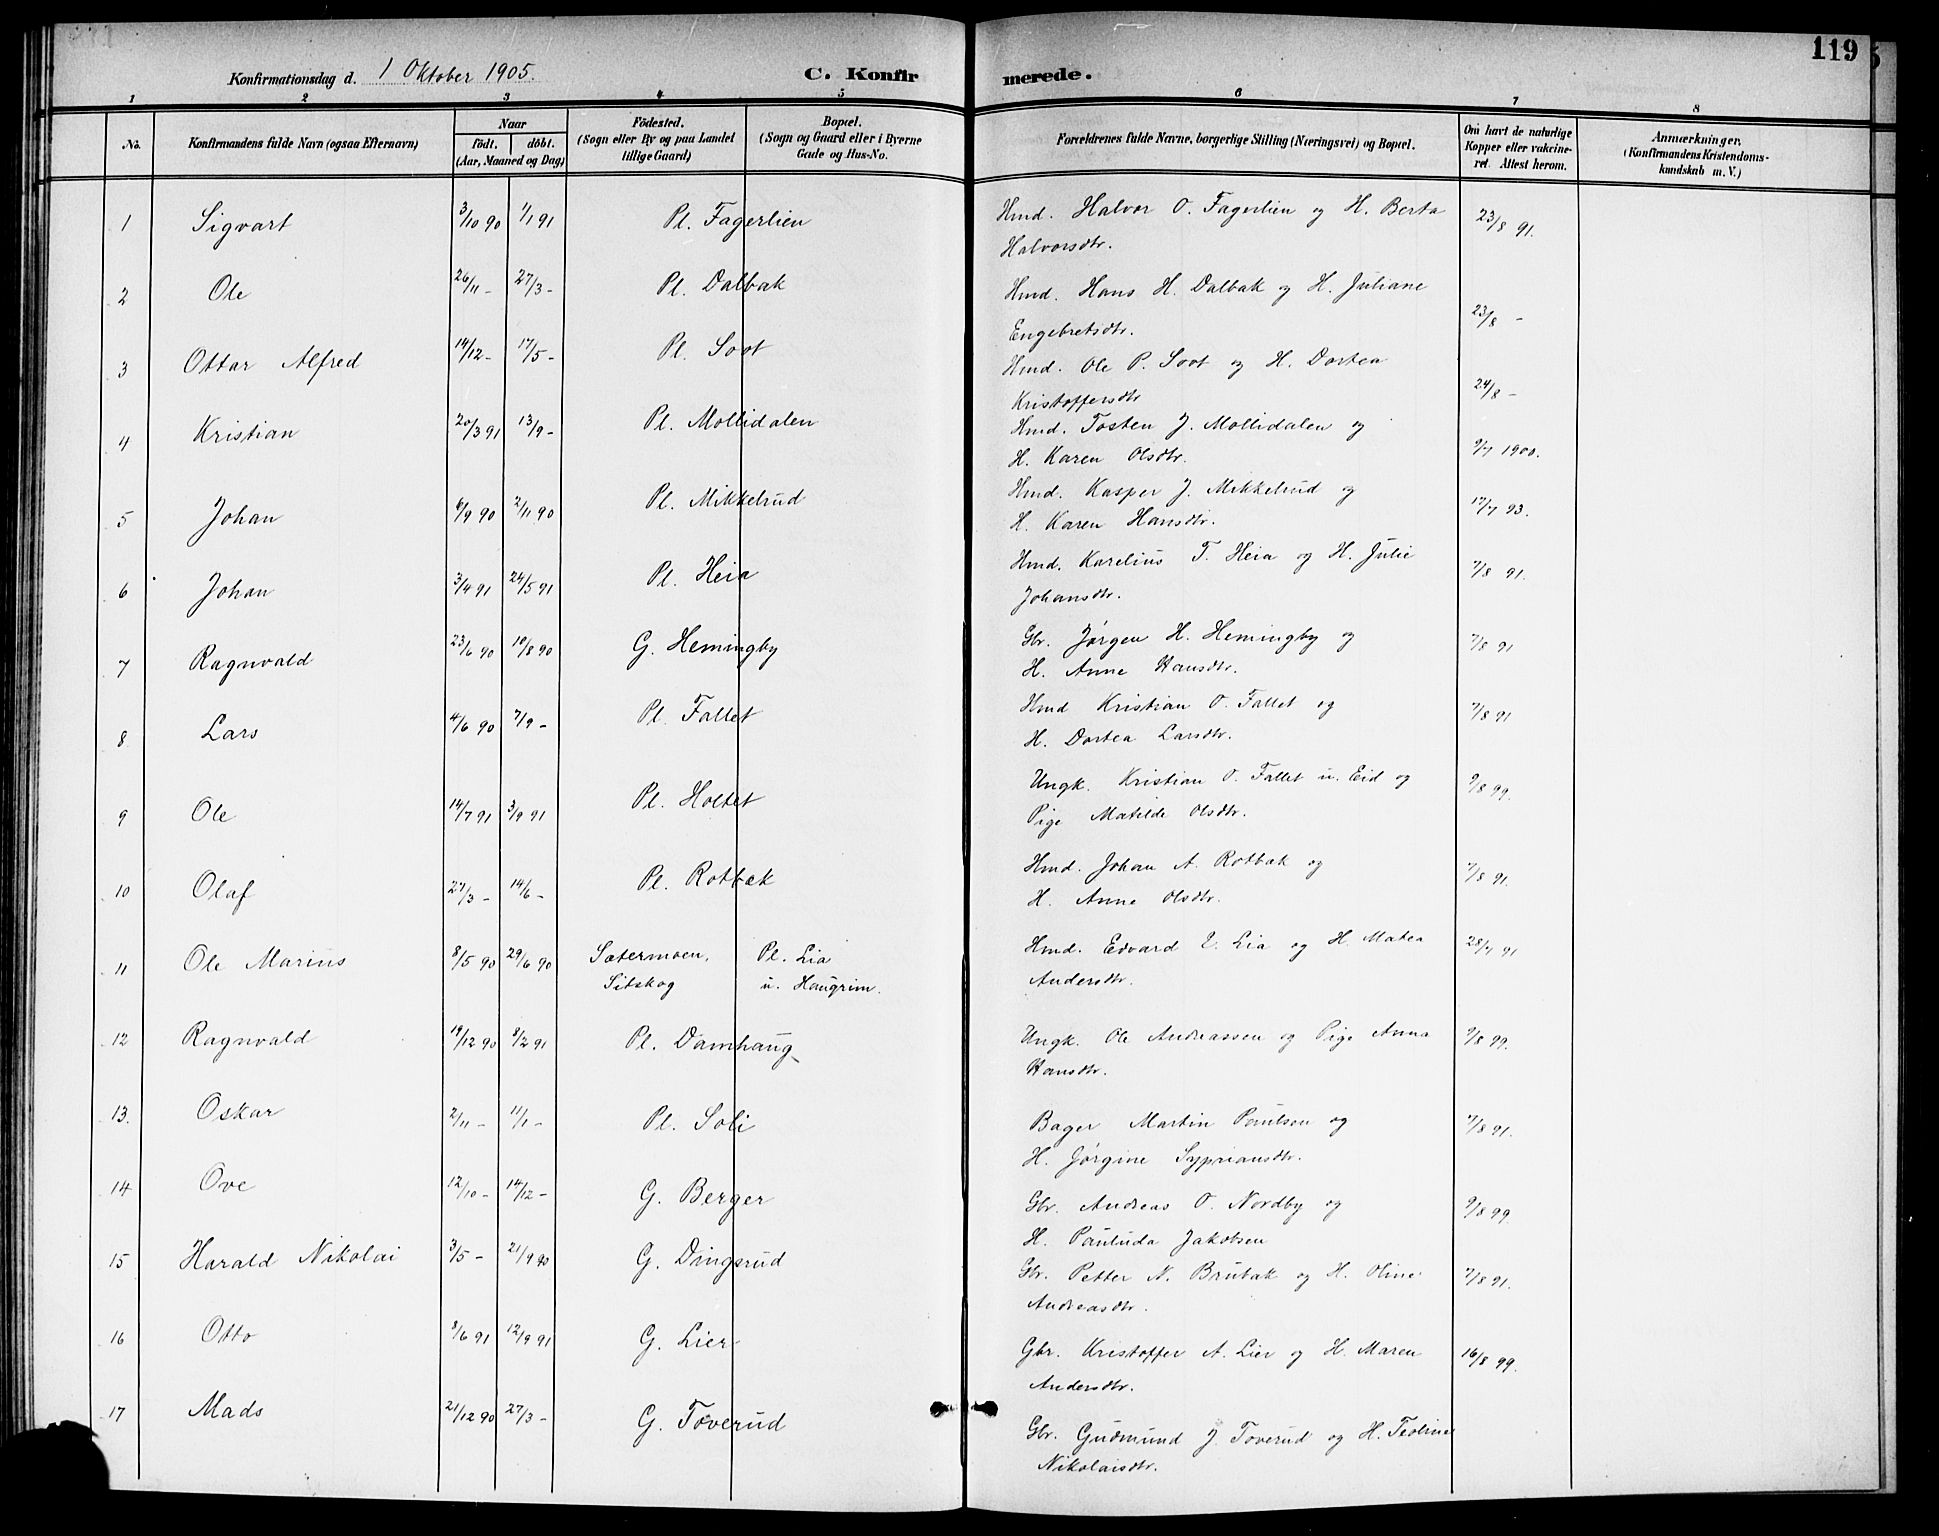 119
Konfirmationsdag d. 1 Oktober 1905.
C. Konfirmerede.
1 2 3 4 5 6 7 8
No.
Konfirmandens fulde Navn (ogsaa Efternavn)
Naar
födt. döbt.
(Aar, Maaned og Dag)
Födested.
(Sogn eller By og paa Landet
tillige Gaard)
Bopæl.
(Sogn og Gaard eller i Byerne
Gade og Hus-No.
Forældrenes fulde Navne, borgerlige Stilling (Næringsvei) og Bopæl.
Om havt de naturlige
Kopper eller vakcine-
ret. Attest herom.
Anmærkninger,
(Konfirmandens Kristendoms-
kundskab m. V.)
1 Sigvart 3/10 90 1/1 91 Pl. Fagerlien Hmd. Halvor O. Fagerlien og H. Berta 23/8 91.
Halvorsdtr.
2 Ole 26/11 - 27/3 - Pl. Dalbak Hmd. Hans H. Dalbak og H. Juliane
Engebretsdtr. 23/8 -
3 Ottar Alfred 14/12 - 17/5 - Pl. Soot Hmd. Ole P. Soot og H. Dortea
Kristoffersdtr 24/8 -
4 Kristian 20/3 91 13/9 - Pl. Mollidalen Hmd. Tosten J. Mollidalen og
H. Karen Olsdtr. 9/7 1900.
5 Johan 6/9 90 2/11 90 Pl. Mikkelrud Hmd. Kasper J. Mikkelrud og
H. Karen Hansdtr. 17/7 93.
6 Johan 3/4 91 24/5 91 Pl. Heia Hmd. Karelius T. Heia og H. Julie 7/8 91.
Johansdtr.
7 Ragnvald 23/6 90 10/8 90 G. Hemingby Gbr. Jørgen H. Hemingby og 7/8 91
H. Anne Hansdtr.
8 Lars 4/6 90 7/9 - Pl. Fallet Hmd Kristian O. Fallet og 7/8 91
H. Dortea Larsdtr.
9 Ole 14/7 91 3/9 91 Pl. Holtet Ungk. Kristian O. Fallet u. Eid og 9/8 99.
Pige Matilde Olsdtr.
10 Olaf 27/3 - 14/6 - Pl. Rotbæk Hmd. Johan A. Rotbæk og 7/8 91.
H. Anne Olsdtr.
11 Ole Marius 8/5 90 29/6 90 Sætermoen, Pl. Lia Hmd. Edvard E. Lia og H. Matea 28/7 91
Sitskog u. Haugrim. Andersdtr.
12 Ragnvald 19/12 90 8/2 91 Pl. Damhaug Ungk. Ole Andreassen og Pige Anna 9/8 99.
Hansdtr.
13. Oskar 2/11 - 11/1 - Pl. Soli Bager Martin Paulsen og 7/8 91.
H. Jørgine Sypriansdtr.
14 Ove 12/10 - 14/12 - G. Berger Gbr. Andreas O. Nordby og 9/8 99.
H. Pauluda Jakobsen
15 Harald Nikolai 3/5 - 21/9 90 G. Dingsrud Gbr. Petter N. Brubak og H. Oline 7/8 91.
Andreasdtr.
16 Otto 8/6 91 12/9 91 G. Lier Gbr. Kristoffer A. Lier og H. Maren 16/8 99.
Andersdtr.
17 Mads 21/12 90 27/3 - G. Toverud Gbr. Gudmund J. Toverud og H. Teoline
Nikolaisdtr.